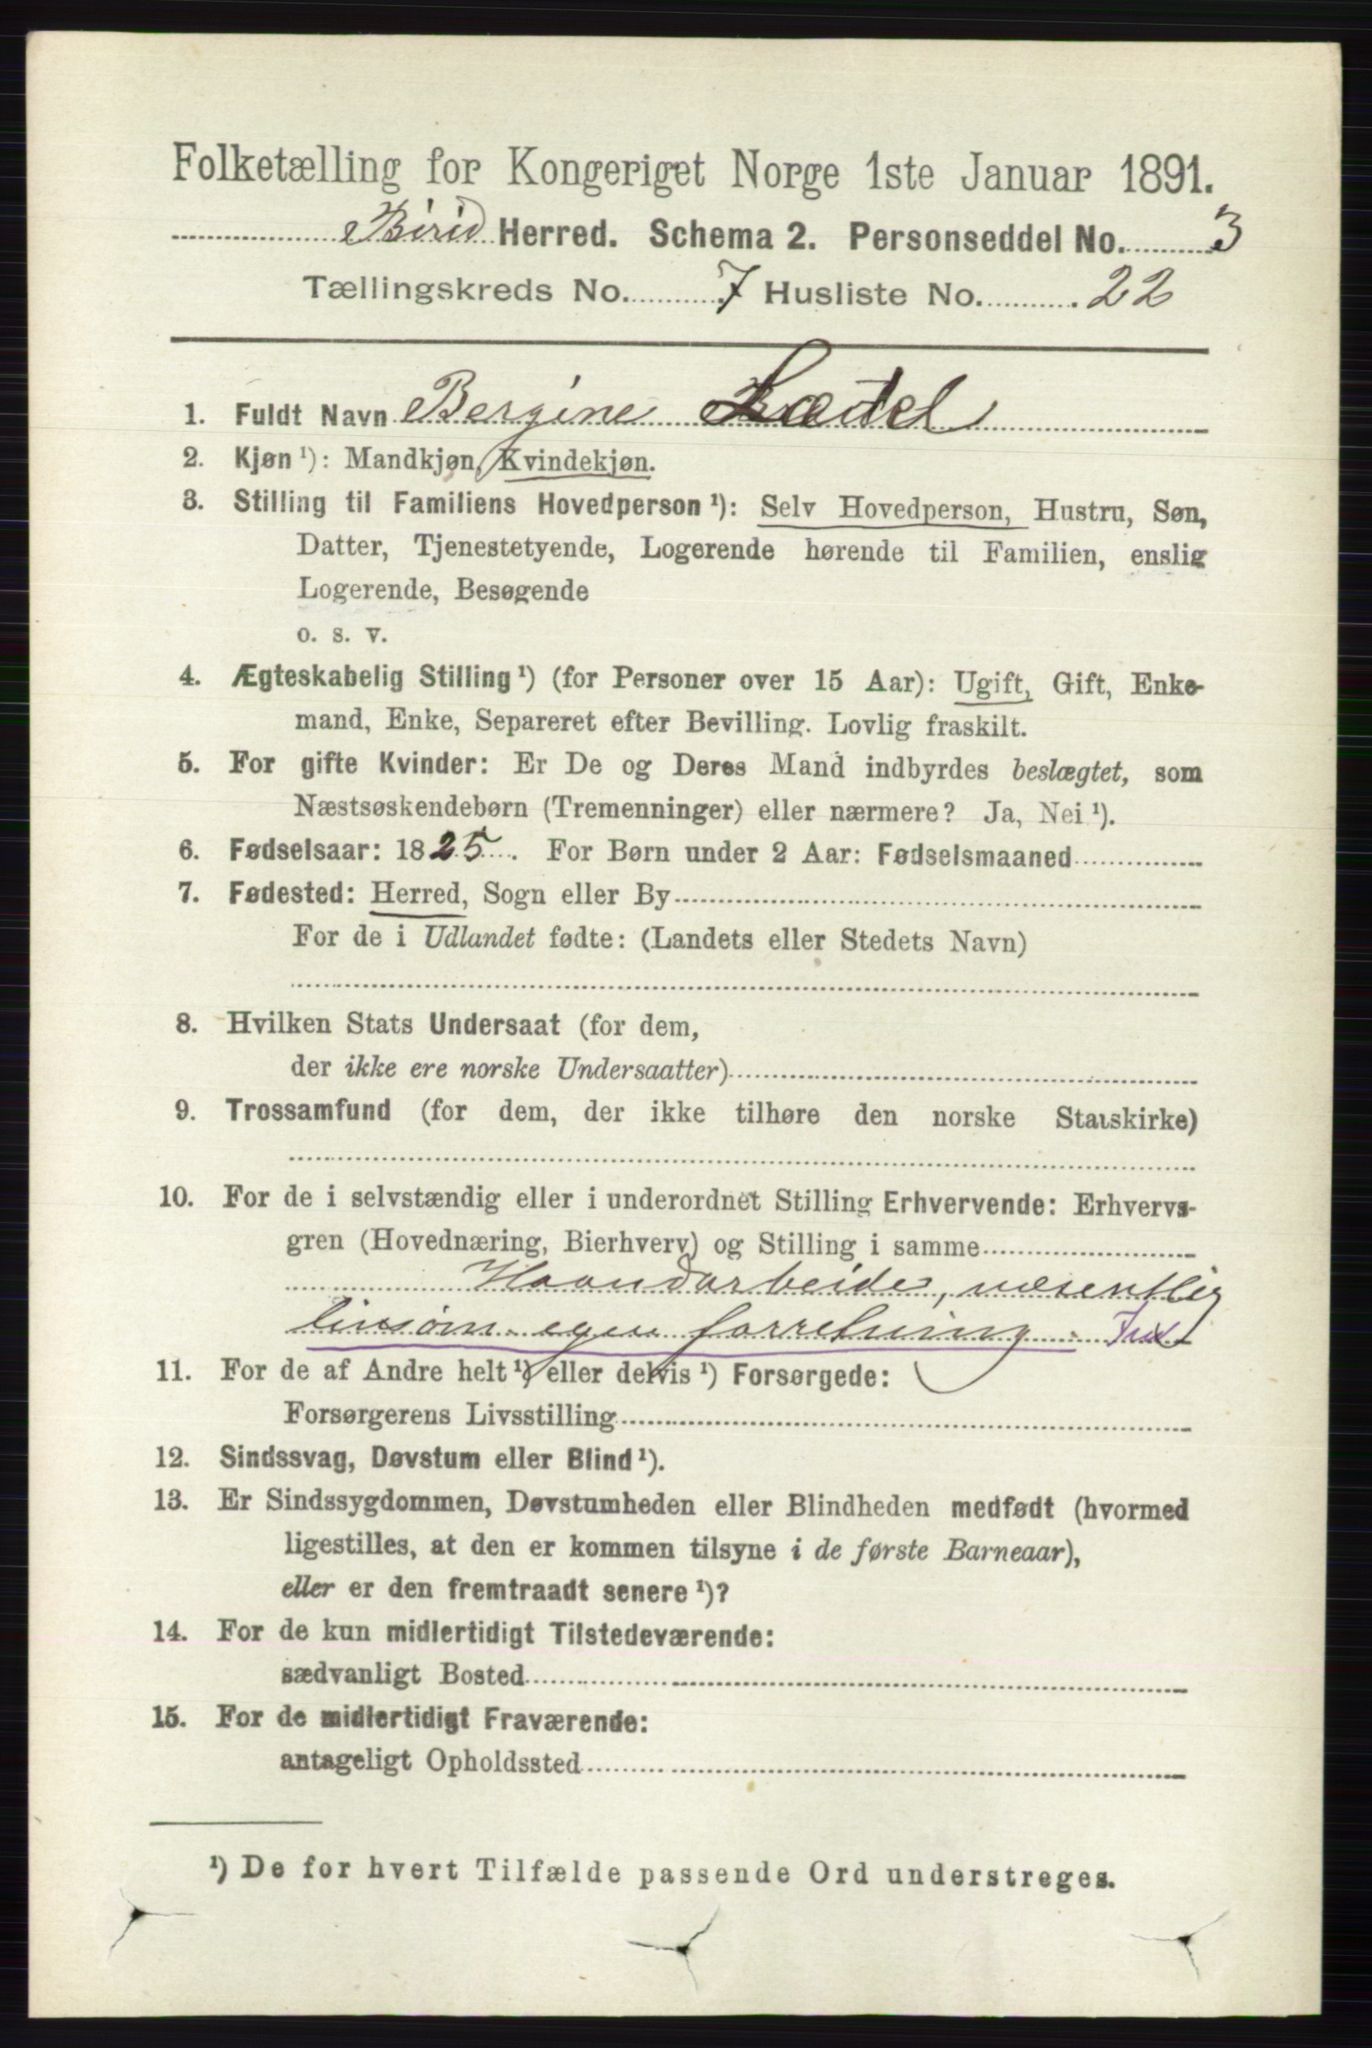 Folketælling for Kongeriget Norge 1ste Januar 1891.
Birid Herred. Schema 2. Personseddel No. 3
Tællingskreds No. 7 Husliste No. 22
1. Fuldt Navn Bergine
2. Kjøn ¹): Mandkjøn, Kvindekjøn.
3. Stilling til Familiens Hovedperson ¹): Selv Hovedperson, Hustru, Søn,
Datter, Tjenestetyende, Logerende hørende til Familien, enslig
Logerende, Besøgende
o. s. v.
4. Ægteskabelig Stilling ¹) (for Personer over 15 Aar): Ugift, Gift, Enke-
mand, Enke, Separeret efter Bevilling. Lovlig fraskilt.
5. For gifte Kvinder: Er De og Deres Mand indbyrdes beslægtet, som
Næstsøskendebørn (Tremenninger) eller nærmere? Ja, Nei ¹).
6. Fødselsaar: 1825. For Børn under 2 Aar: Fødselsmaaned
7. Fødested: Herred, Sogn eller By
For de i Udlandet fødte: (Landets eller Stedets Navn)
8. Hvilken Stats Undersaat (for dem,
der ikke ere norske Undersaatter)
9. Trossamfund (for dem, der ikke tilhøre den norske Statskirke)
10. For de i selvstændig eller i underordnet Stilling Erhvervende: Erhvervs-
gren (Hovednæring, Bierhverv) og Stilling i samme
Haandarbeide, væsentlig
linsøm. egen forretning.
11. For de af Andre helt ¹) eller delvis ¹) Forsørgede:
Forsørgerens Livsstilling
12. Sindssvag, Døvstum eller Blind ¹).
13. Er Sindssygdommen, Døvstumheden eller Blindheden medfødt (hvormed
ligestilles, at den er kommen tilsyne i de første Barneaar),
eller er den fremtraadt senere ¹)?
14. For de kun midlertidigt Tilstedeværende:
sædvanligt Bosted
15. For de midlertidigt Fraværende:
antageligt Opholdssted
¹) De for hvert Tilfælde passende Ord understreges.